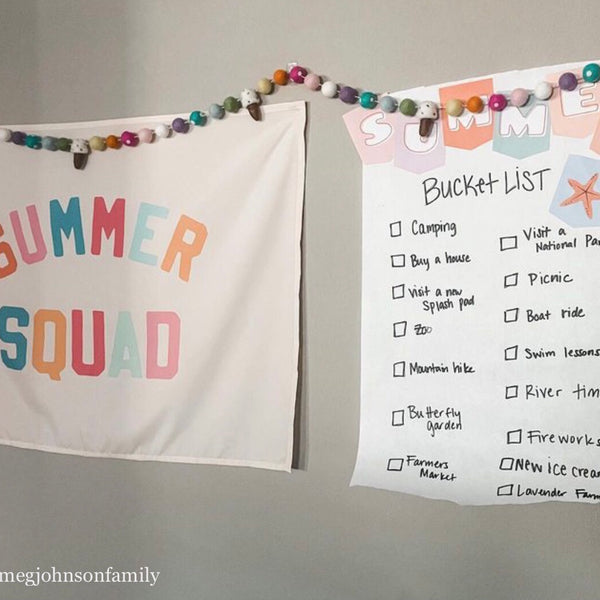 SUMMER
SQUAD
SUMME
BUCKET LIST
Camping
Buy a house
Visit a new
Splash pad
Zoo
Mountain hike
Butterfly
garden
Farmers
Market
Visit a
National Par
Picnic
Boat ride
Swim lessons
River tim
Fireworks
New ice crea
Lavender Farm
megjohnsonfamily